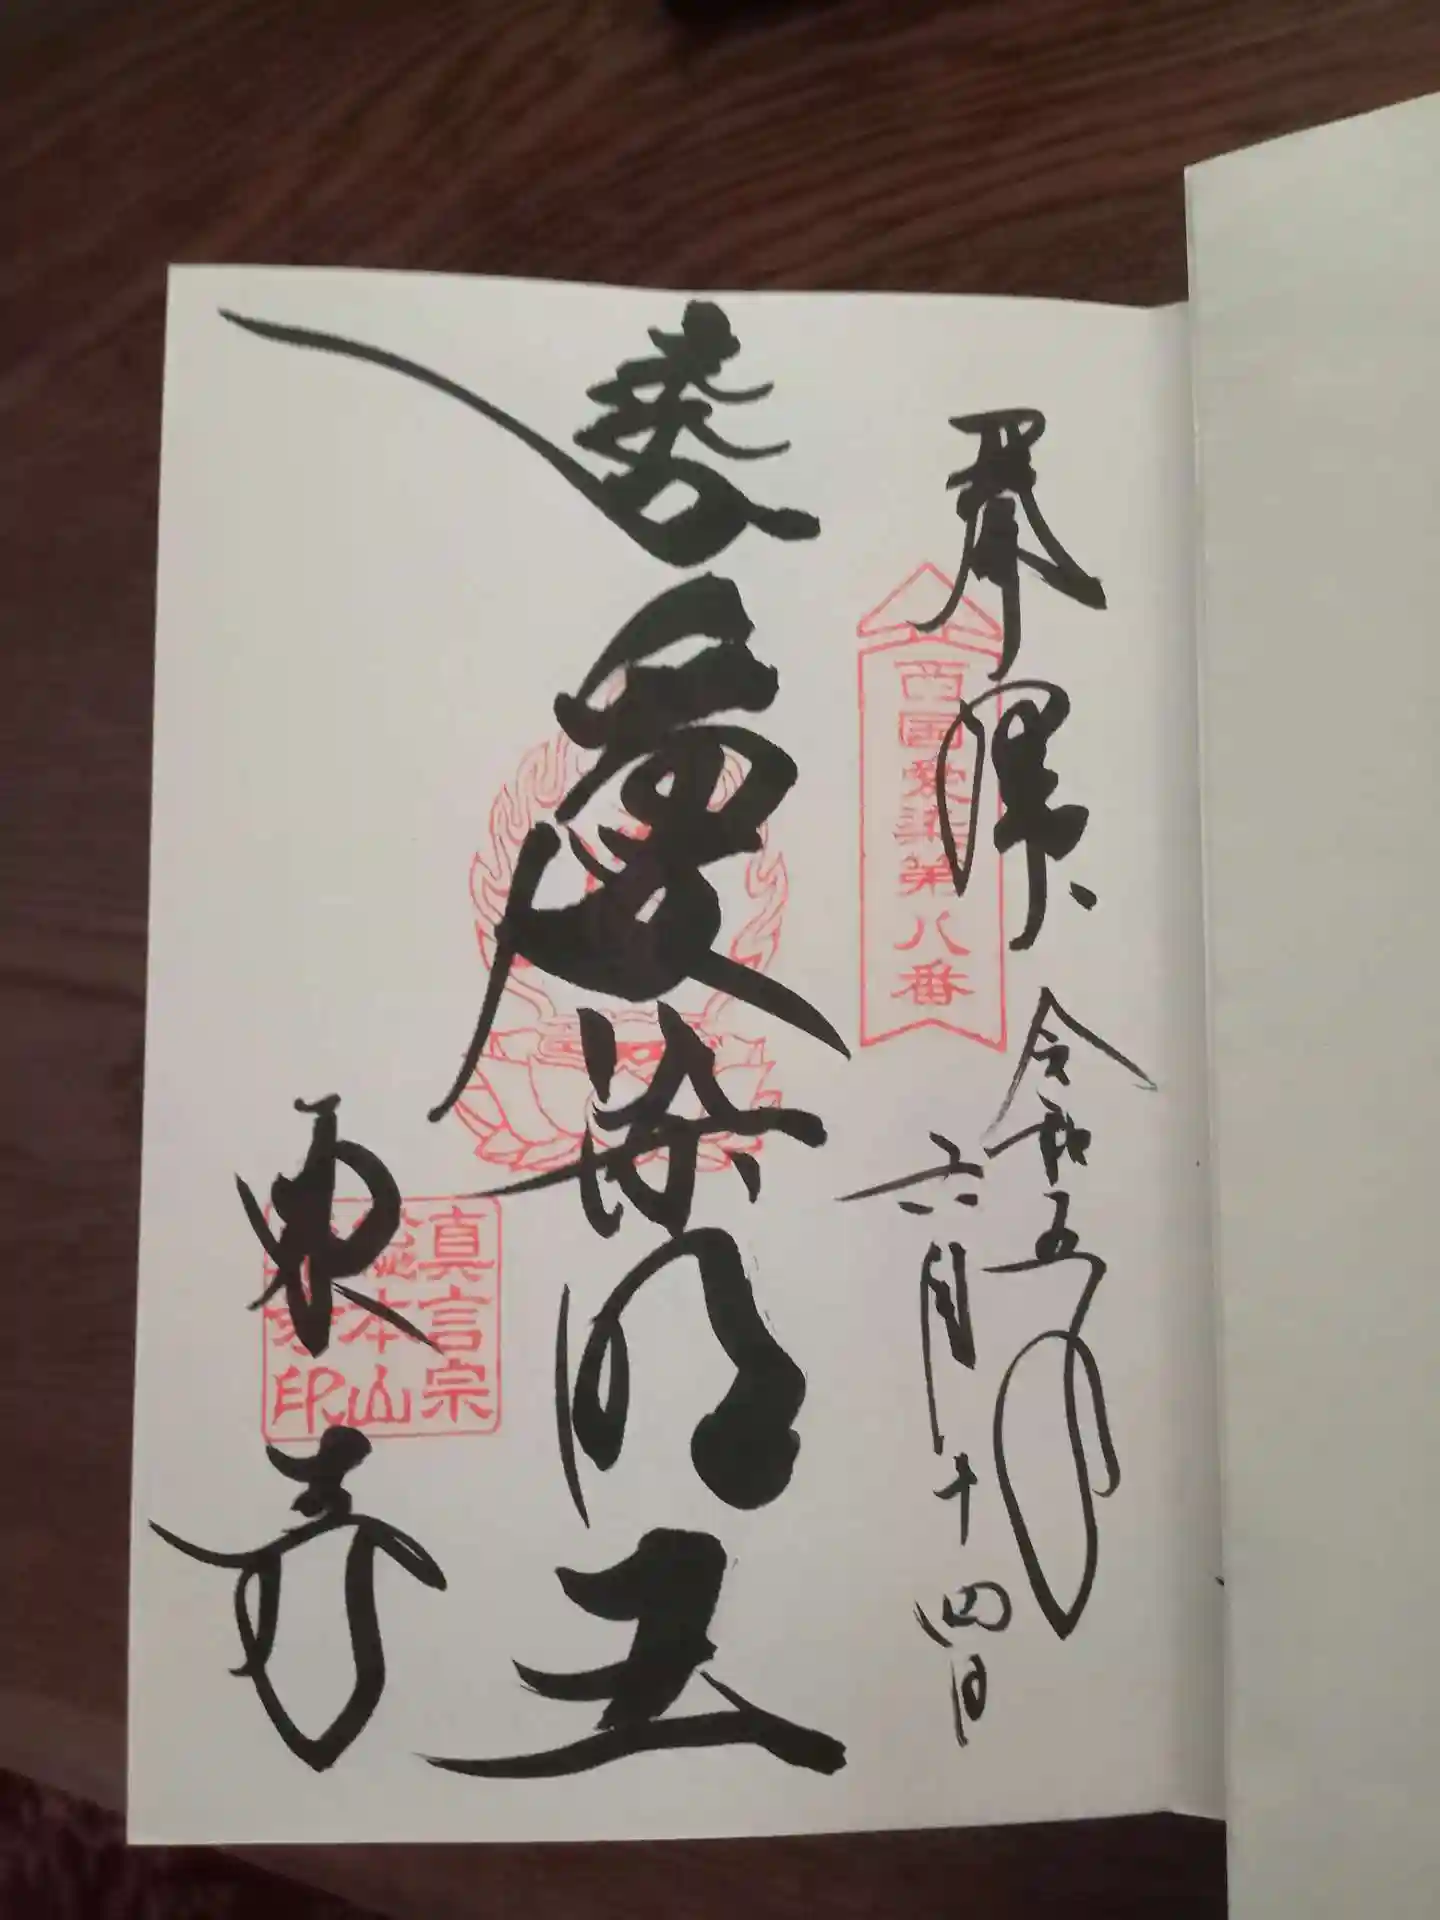 奉拝
西国愛染第八番
令和五年
六月十四日
愛染明王
東寺
真言宗
總本山
東寺印